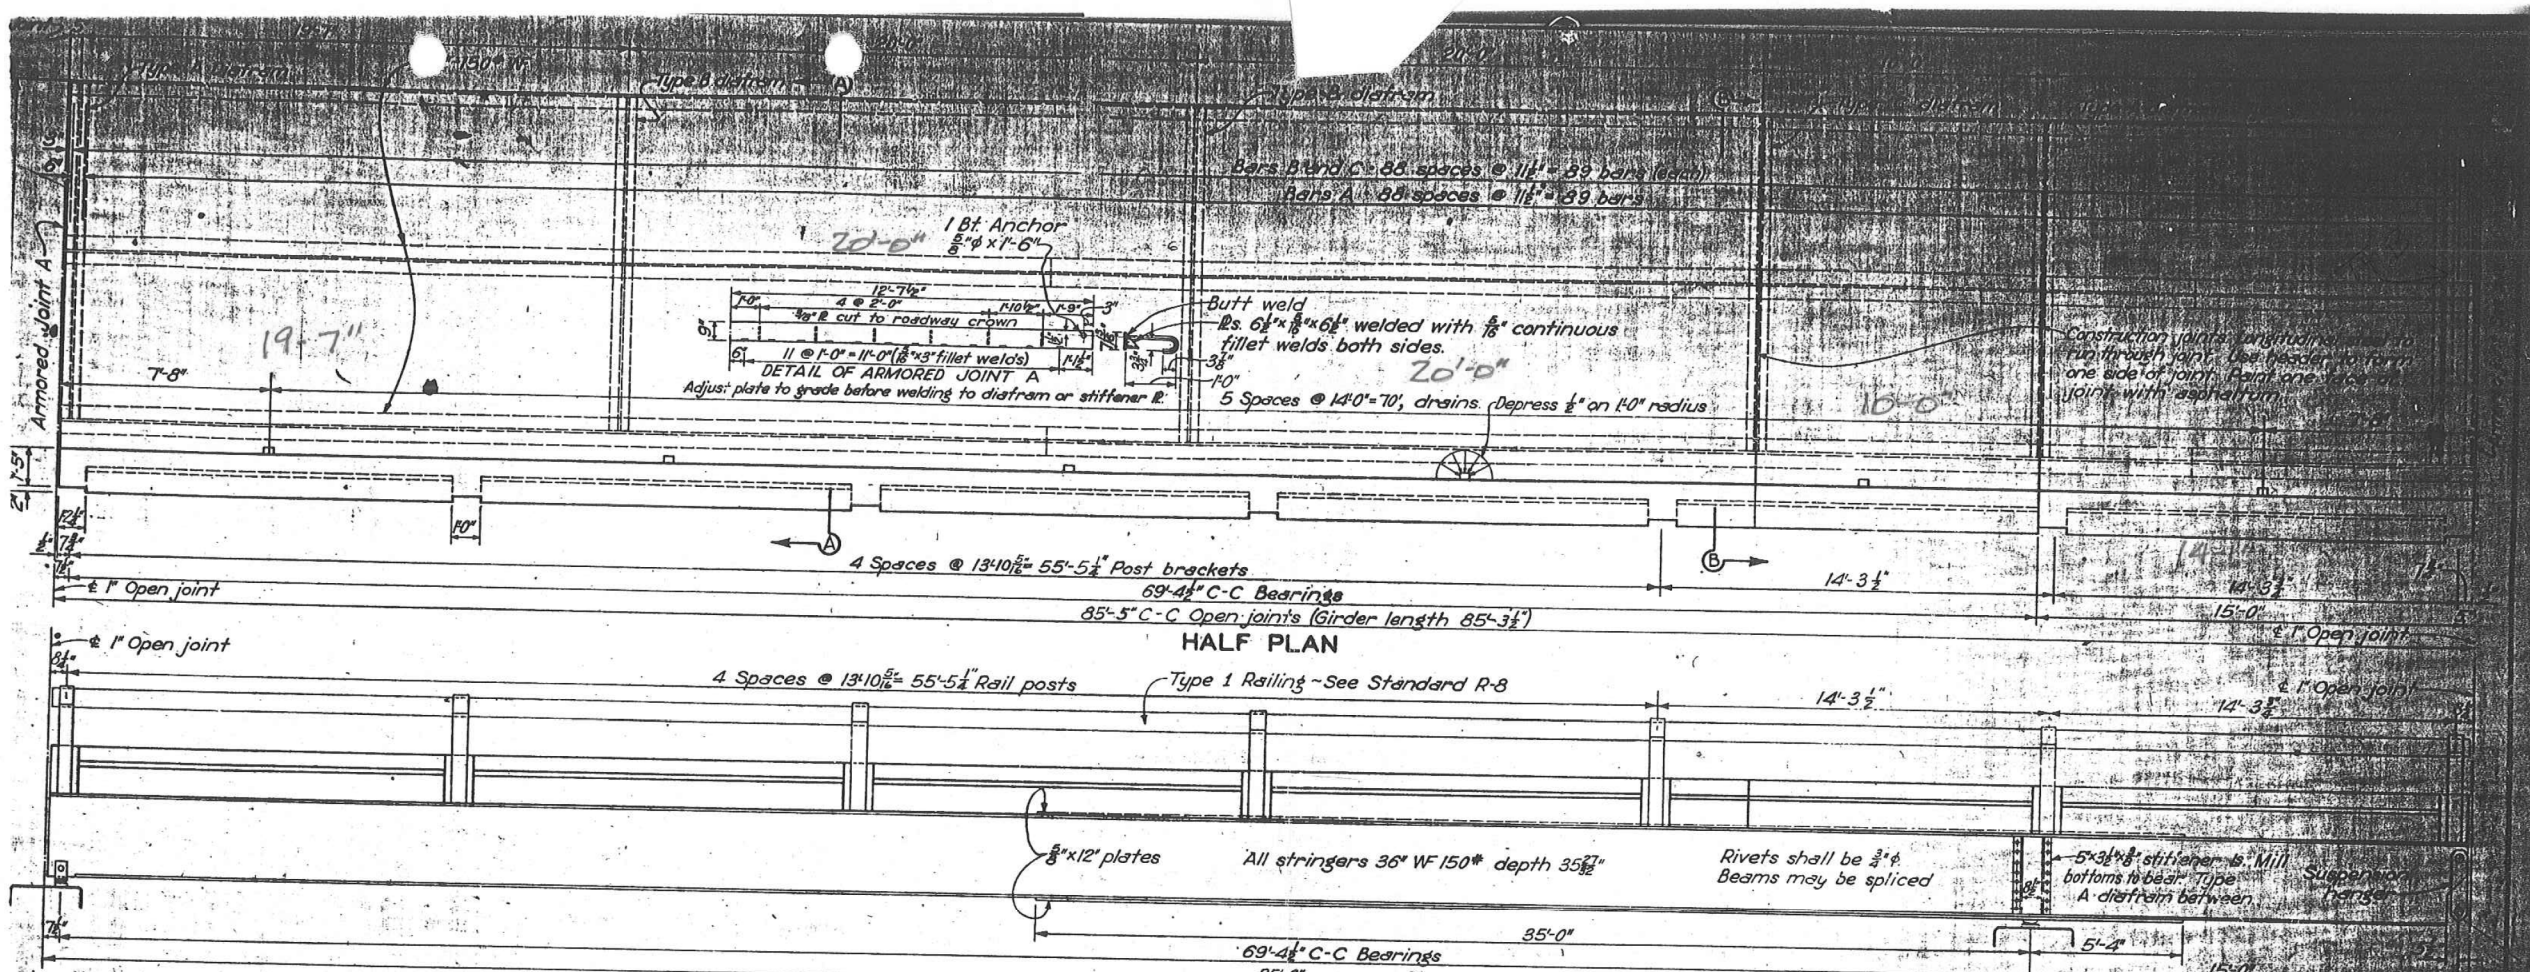 20'-0"
20'-0"
Type A diafram
150# WF
Type B diafram
A
Type B diafram
B
diafram
3"
6"
Bars B and C - 88 spaces @ 11½" = 89 bars (each)
Bars A - 88 spaces @ 11½" = 89 bars
Armored Joint A
20'-0"
1 Bt. Anchor
⅝"φ x 1'-6"
12'-7½"
1'-0"
4 @ 2'-0"
1'-10½"
1'-9"
3"
⅜" ℞ cut to roadway crown
9"
6"
11 @ 1'-0" = 11'-0" (5/16" x 3" fillet welds)
1'-1½"
DETAIL OF ARMORED JOINT A
Adjust plate to grade before welding to diafram or stiffener ℞.
Butt weld
℞s. 6½" x 5/16" x 6½" welded with 5/16" continuous
fillet welds both sides.
3⅞"
1'-0"
19-7"
20'-0"
16-0"
7'-8"
5 Spaces @ 14'-0" = 70', drains.
Depress ½" on 1'-0" radius
Construction joints. Longitudinal
run through joint. Use header to form
one side of joint. Paint one face of
joint with asphaltum.
1'-5"
2"
12¼"
1'-0"
½"
7¾"
7½"
A
B
4 Spaces @ 13'-10 5/16" = 55'-5¼" Post brackets
14'-3½"
14'-3¾"
7½"
69'-4½" C-C Bearings
15'-0"
℄ 1" Open joint
85'-5" C-C Open joints (Girder length 85'-3½")
℄ 1" Open joint
HALF PLAN
℄ 1" Open joint
8¼"
4 Spaces @ 13'-10 5/16" = 55'-5¼" Rail posts
Type 1 Railing ~ See Standard R-8
14'-3½"
14'-3¾"
℄ 1" Open joint
⅝" x 12" plates
All stringers 36" WF 150# depth 35 27/32"
Rivets shall be ¾"φ
Beams may be spliced
8½"
5" x 3½" x ⅜" stiffener ℞s. Mill
bottoms to bear. Type
A diafram between
Suspension
hanger
7½"
35'-0"
5'-4"
69'-4½" C-C Bearings
15'-0"